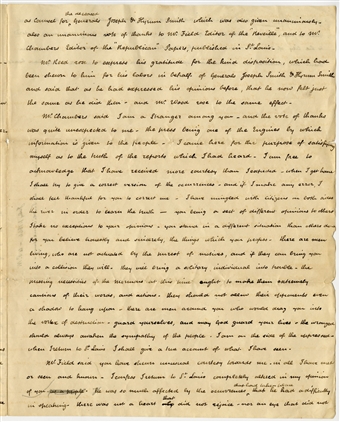 the deceased
as Counsel for Generals Joseph & Hyrum Smith which was also given unanimously
also an unanimous vote of thanks to Mr. Field Editor of the Reveille, and to Mr.
Chambers Editor of the Republican Papers, published in St. Louis.
Mr. Reed rose to express his gratitude for the kind disposition, which had
been shewn to him for his labors in behalf of Generals Joseph Smith & Hyrum Smith
and said that as he had expressed his opinions before, that he now felt just
the same as he did then - and Mr. Wood rose to the same effect.
Mr. Chambers said I am a Stranger among you - and the vote of thanks
was quite unexpected to me - the press being one of the Engines by which
information is given to the people - I came here for the purpose of satisfying
myself as to the truth of the reports which I had heard - I am free to
acknowledge that I have received more courtesy than I expected - when I get home
I shall try to give a correct version of the occurrences - and if I make any error, I
shall feel thankful for you to correct me - I have mingled with citizens on both sides
the river in order to learn the truth - you being a set of different opinions to others
I take no exceptions to your opinions - you stand in a different situation than others
for you believe honestly and sincerely, the things which you profess - there are men
living, who are not actuated by the purest of motives, and if they can bring you
into a collision they will - they will bring a solitary individual into trouble - the
pressing necessities of the Mormons at this time ought to make them extremely
cautious of their words, and actions - they should not allow their opponents even
a shadow to hang upon - there are men around you who would drag you into
the vortex of destruction - guard yourselves, and may God guard your lives - the wronged
should always awaken the sympathy of the people - I am on the side of the oppressed
when I return to St Louis I shall give a true account of what I have seen
Mr. Field said you have shewn unusual courtesy towards me - in all I have met
or seen and known - I confess I return to St Louis completely altered in my opinion
of you he was so much affected by the occurrences that he had a difficulty
in speaking - there was not a heart that did not rejoice - nor an eye that did not